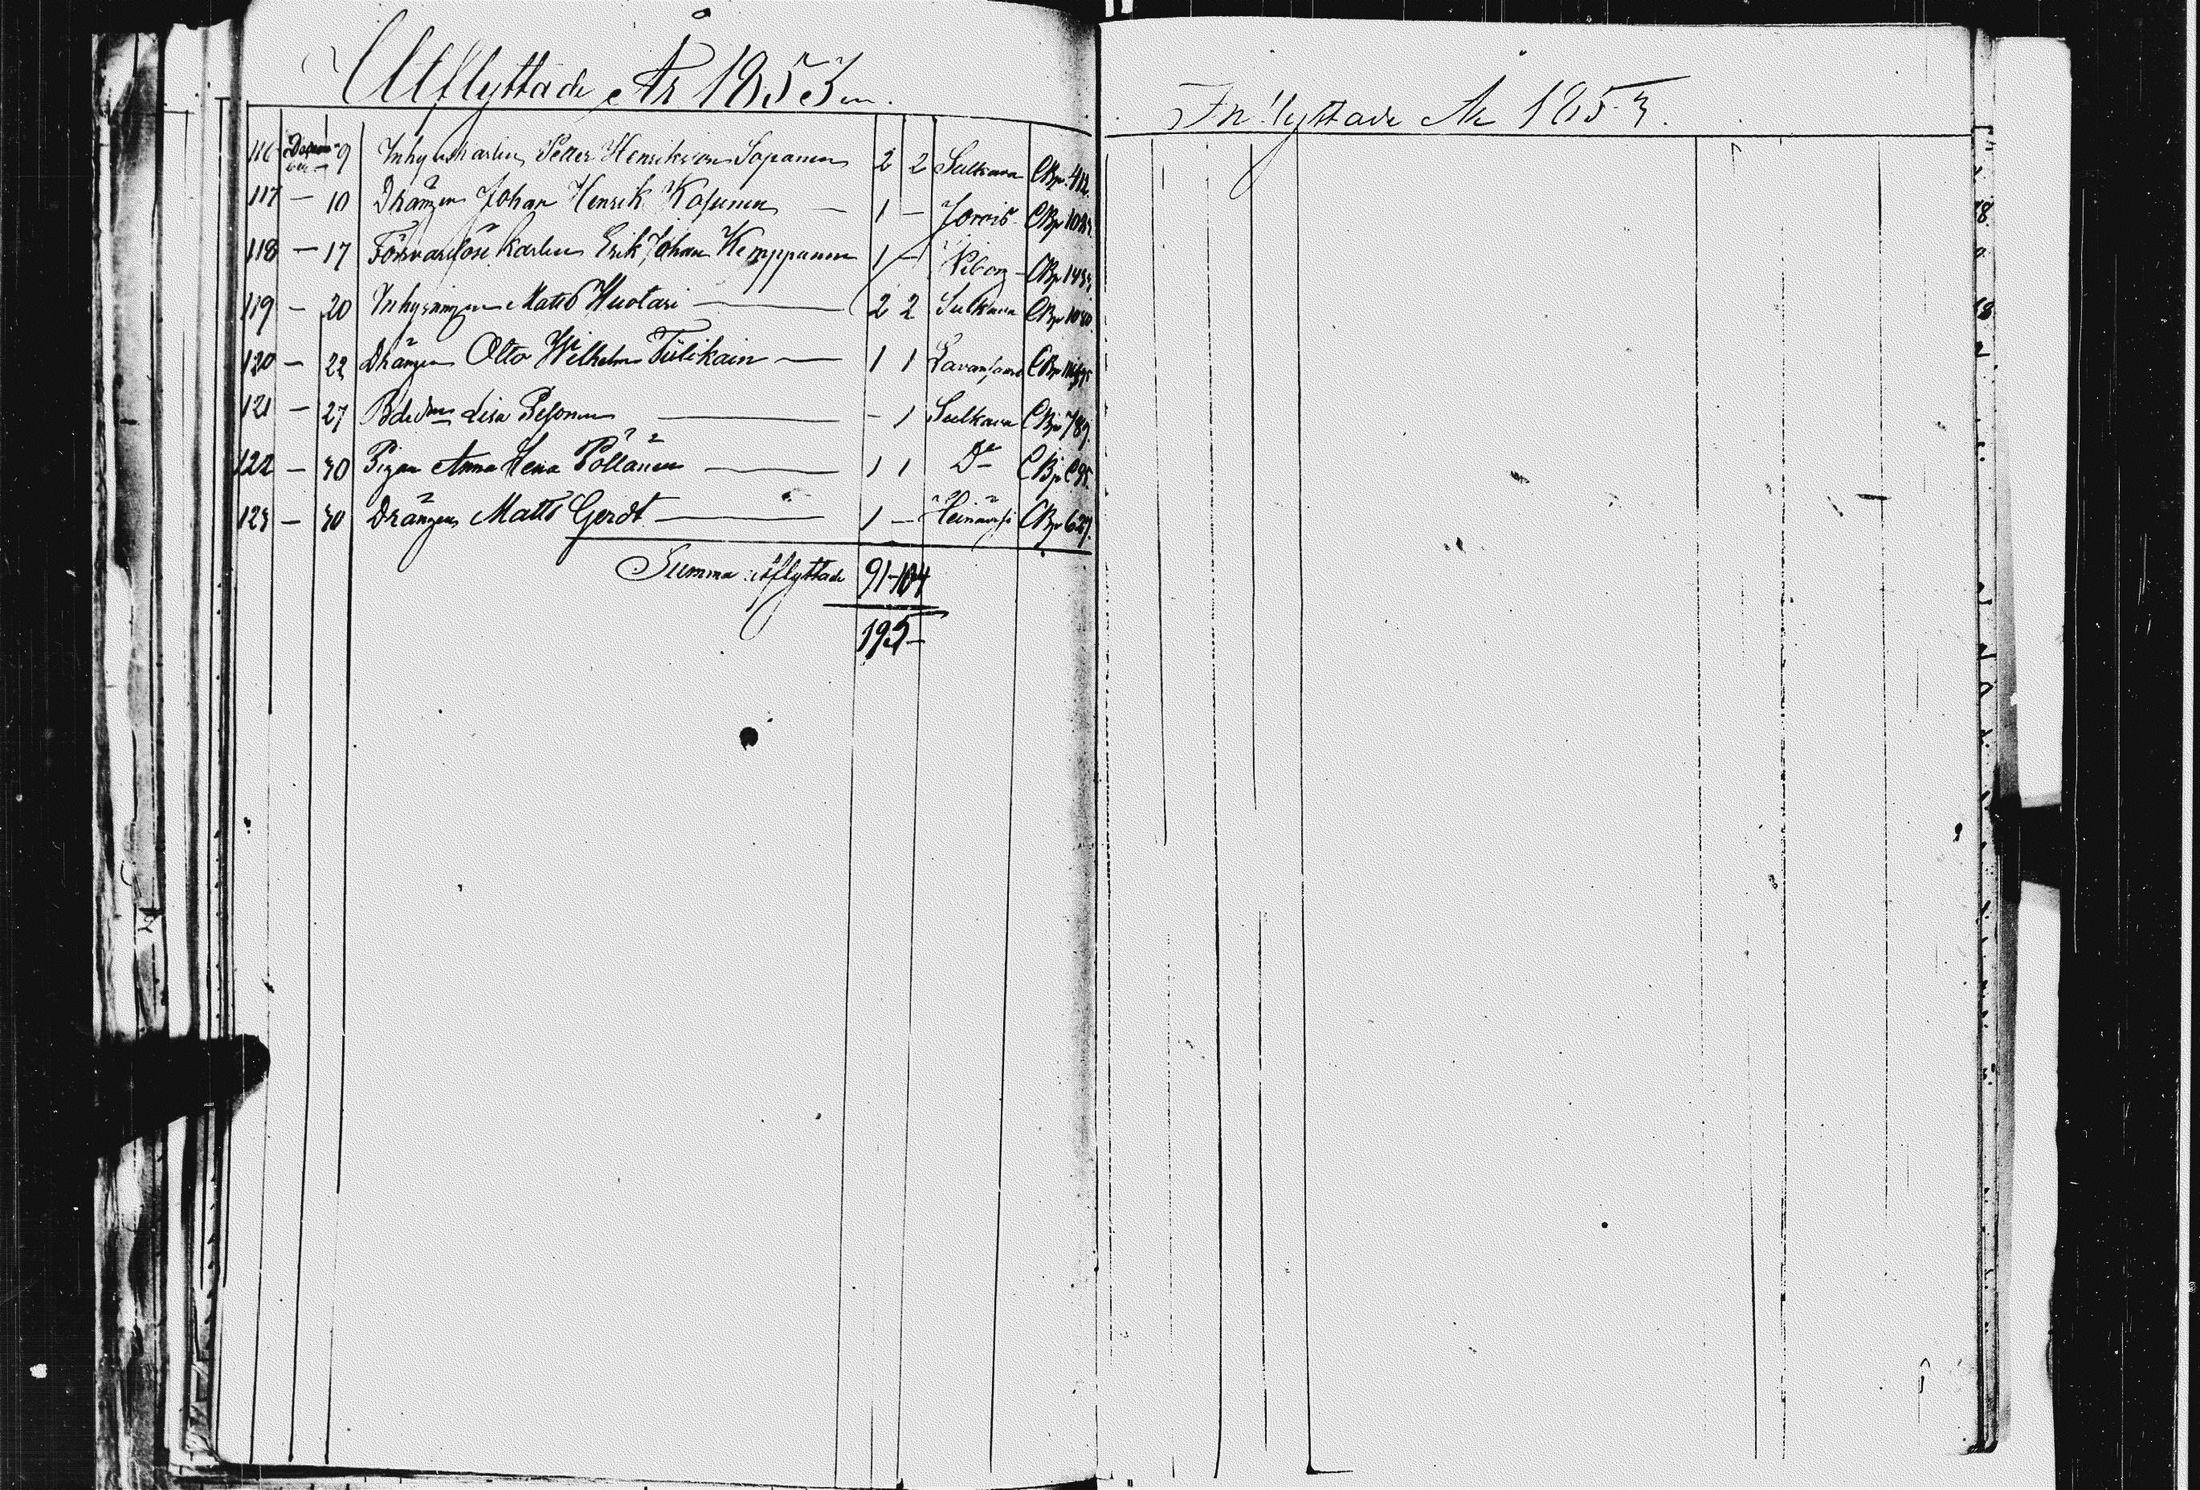 Utflyttade År 1853
116 December 9 Inhyseskarlen Petter Henriksson Sapanen 2 2 Sulkava CBp. 412.
117 – 10 Drängen Johan Henrik Kosunen – 1 – Jorois CBp
118 – 17 Försvarslöse karlen Erik Johan Kemppanen 1 – Viborg – CBp
119 – 20 Inhysningen Matts Huotari – 2 2 Sulkava CBp
120 – 22 Drängen Otto Wilhelm Tiilikain – 1 1 Lavansaari CBp
121 – 27 Lisa Pesonen – – 1 Sulkava CBp 789.
122 – 30 Pigan Anna Lena Pöllänen – 1 1 Do CBp
123 – 30 Drängen Matts Gerdt – 1 – CBp 627.
Summa utflyttade 91–104
195–
Inflyttade År 1853.